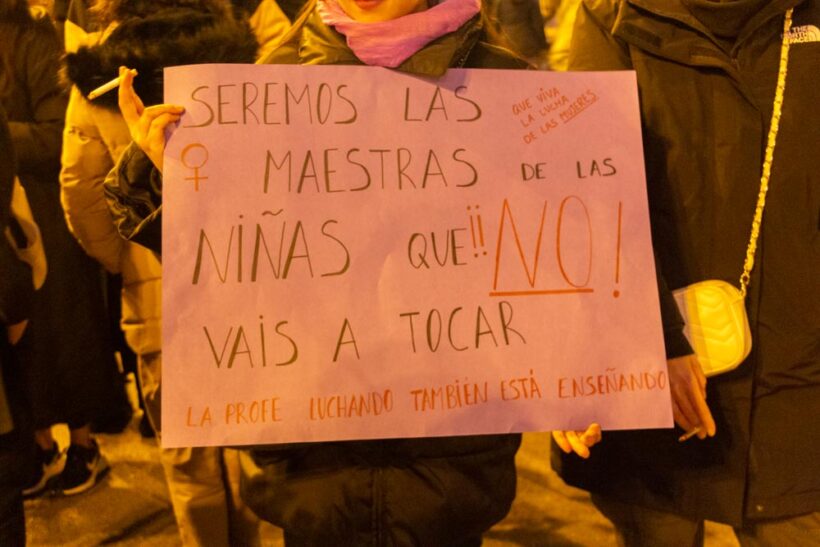 SEREMOS LAS
QUE VIVA
LA LUCHA
DE LAS MUJERES
♀ MAESTRAS DE LAS
NIÑAS QUE !!NO!
VAIS A TOCAR
LA PROFE LUCHANDO TAMBIÉN ESTÁ ENSEÑANDO
THE
NORTH
FACE